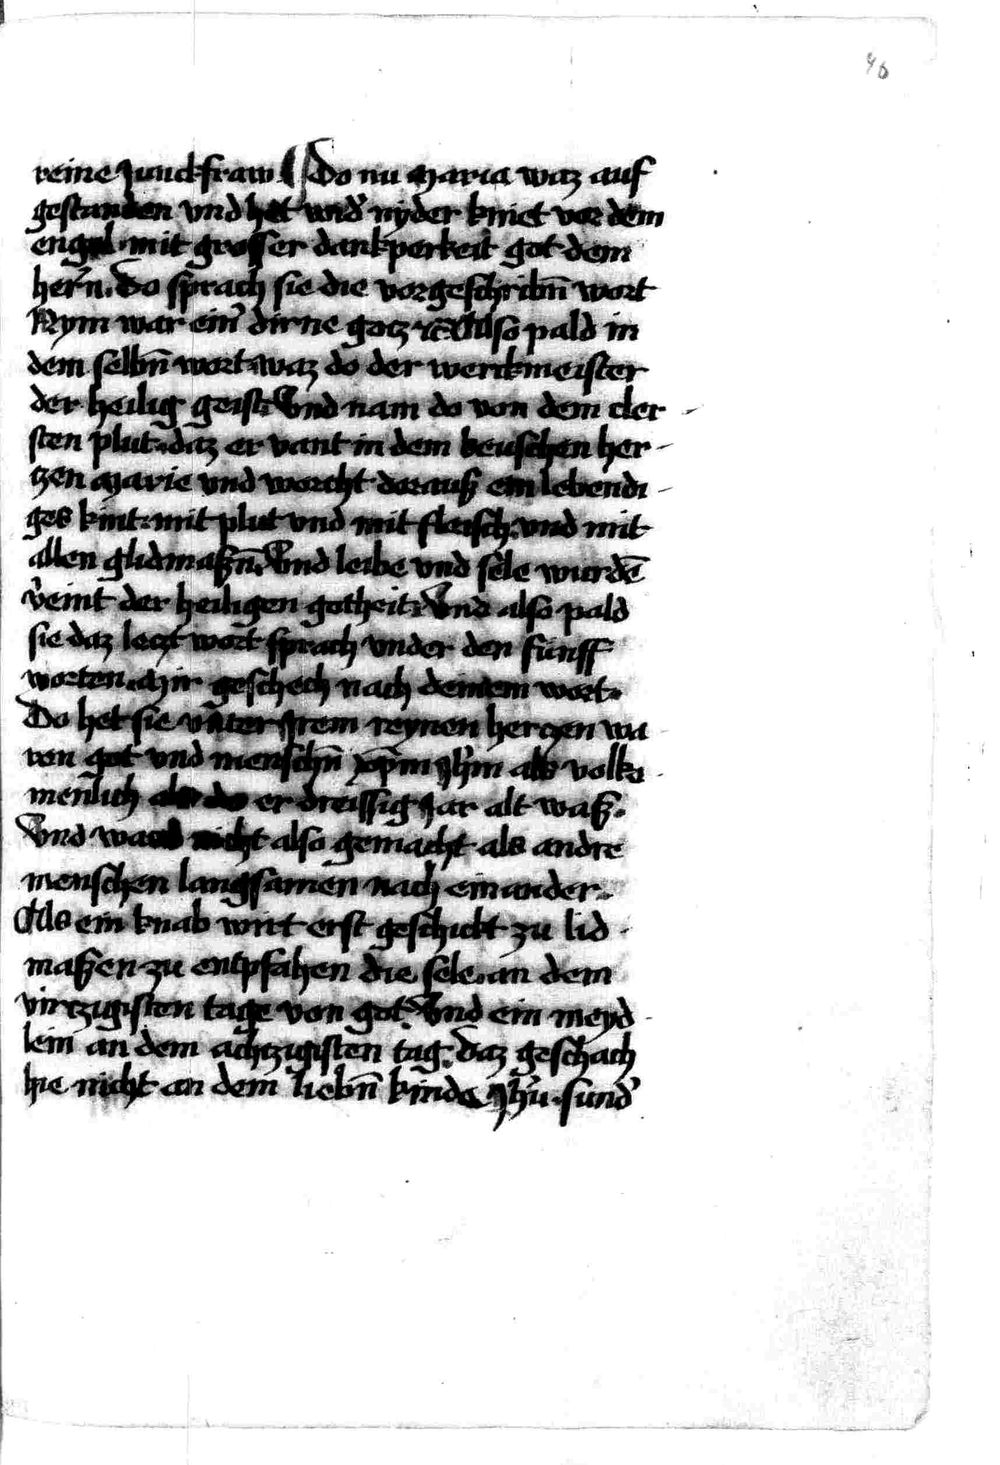 46
reine Junckfraw ¶ Do nu Maria waz auf
gestanden vnd het wid᷑ nyder kniet vor dem
engel mit grosser dankperkeit got dem
her᷑n. Do sprach sie die vorgeschribn̄ wort
Nym war ein᷑ dirne gotz ꝛc Also pald in
dem selbn̄ wort waz do der werckmeister
der heilig geist Vnd nam do von dem cler
sten plut daz er vant in dem keuschen her-
tzen Marie vnd worcht darauß ein lebendi-
ges kint mit plut vnd mit fleisch vnd mit
allen glidmaßn̄. Vnd leibe vnd sele wurdē
v᷑eint der heiligen gotheit Vnd also pald
sie daz leczt wort sprach vnder den fünff
worten. Mir geschech nach deinem wort.
Do het sie vn̄ter Jrem reynen herczen wa
ren got vnd menschn̄ xp̄m Jh᷑m als volko
menlich als do er dreissig Jar alt waß.
Vnd ward nicht also gemacht als andre
menschen langsamen nach einander.
Als ein knab wirt erst geschickt zu lid
maßen zu entpfahen die sele an dem
virtzigisten tage von got Vnd ein meyd-
lein an dem achtzigisten tag. Daz geschach
hie nicht an dem liebn̄ kinde Jh᷑u. sund᷑